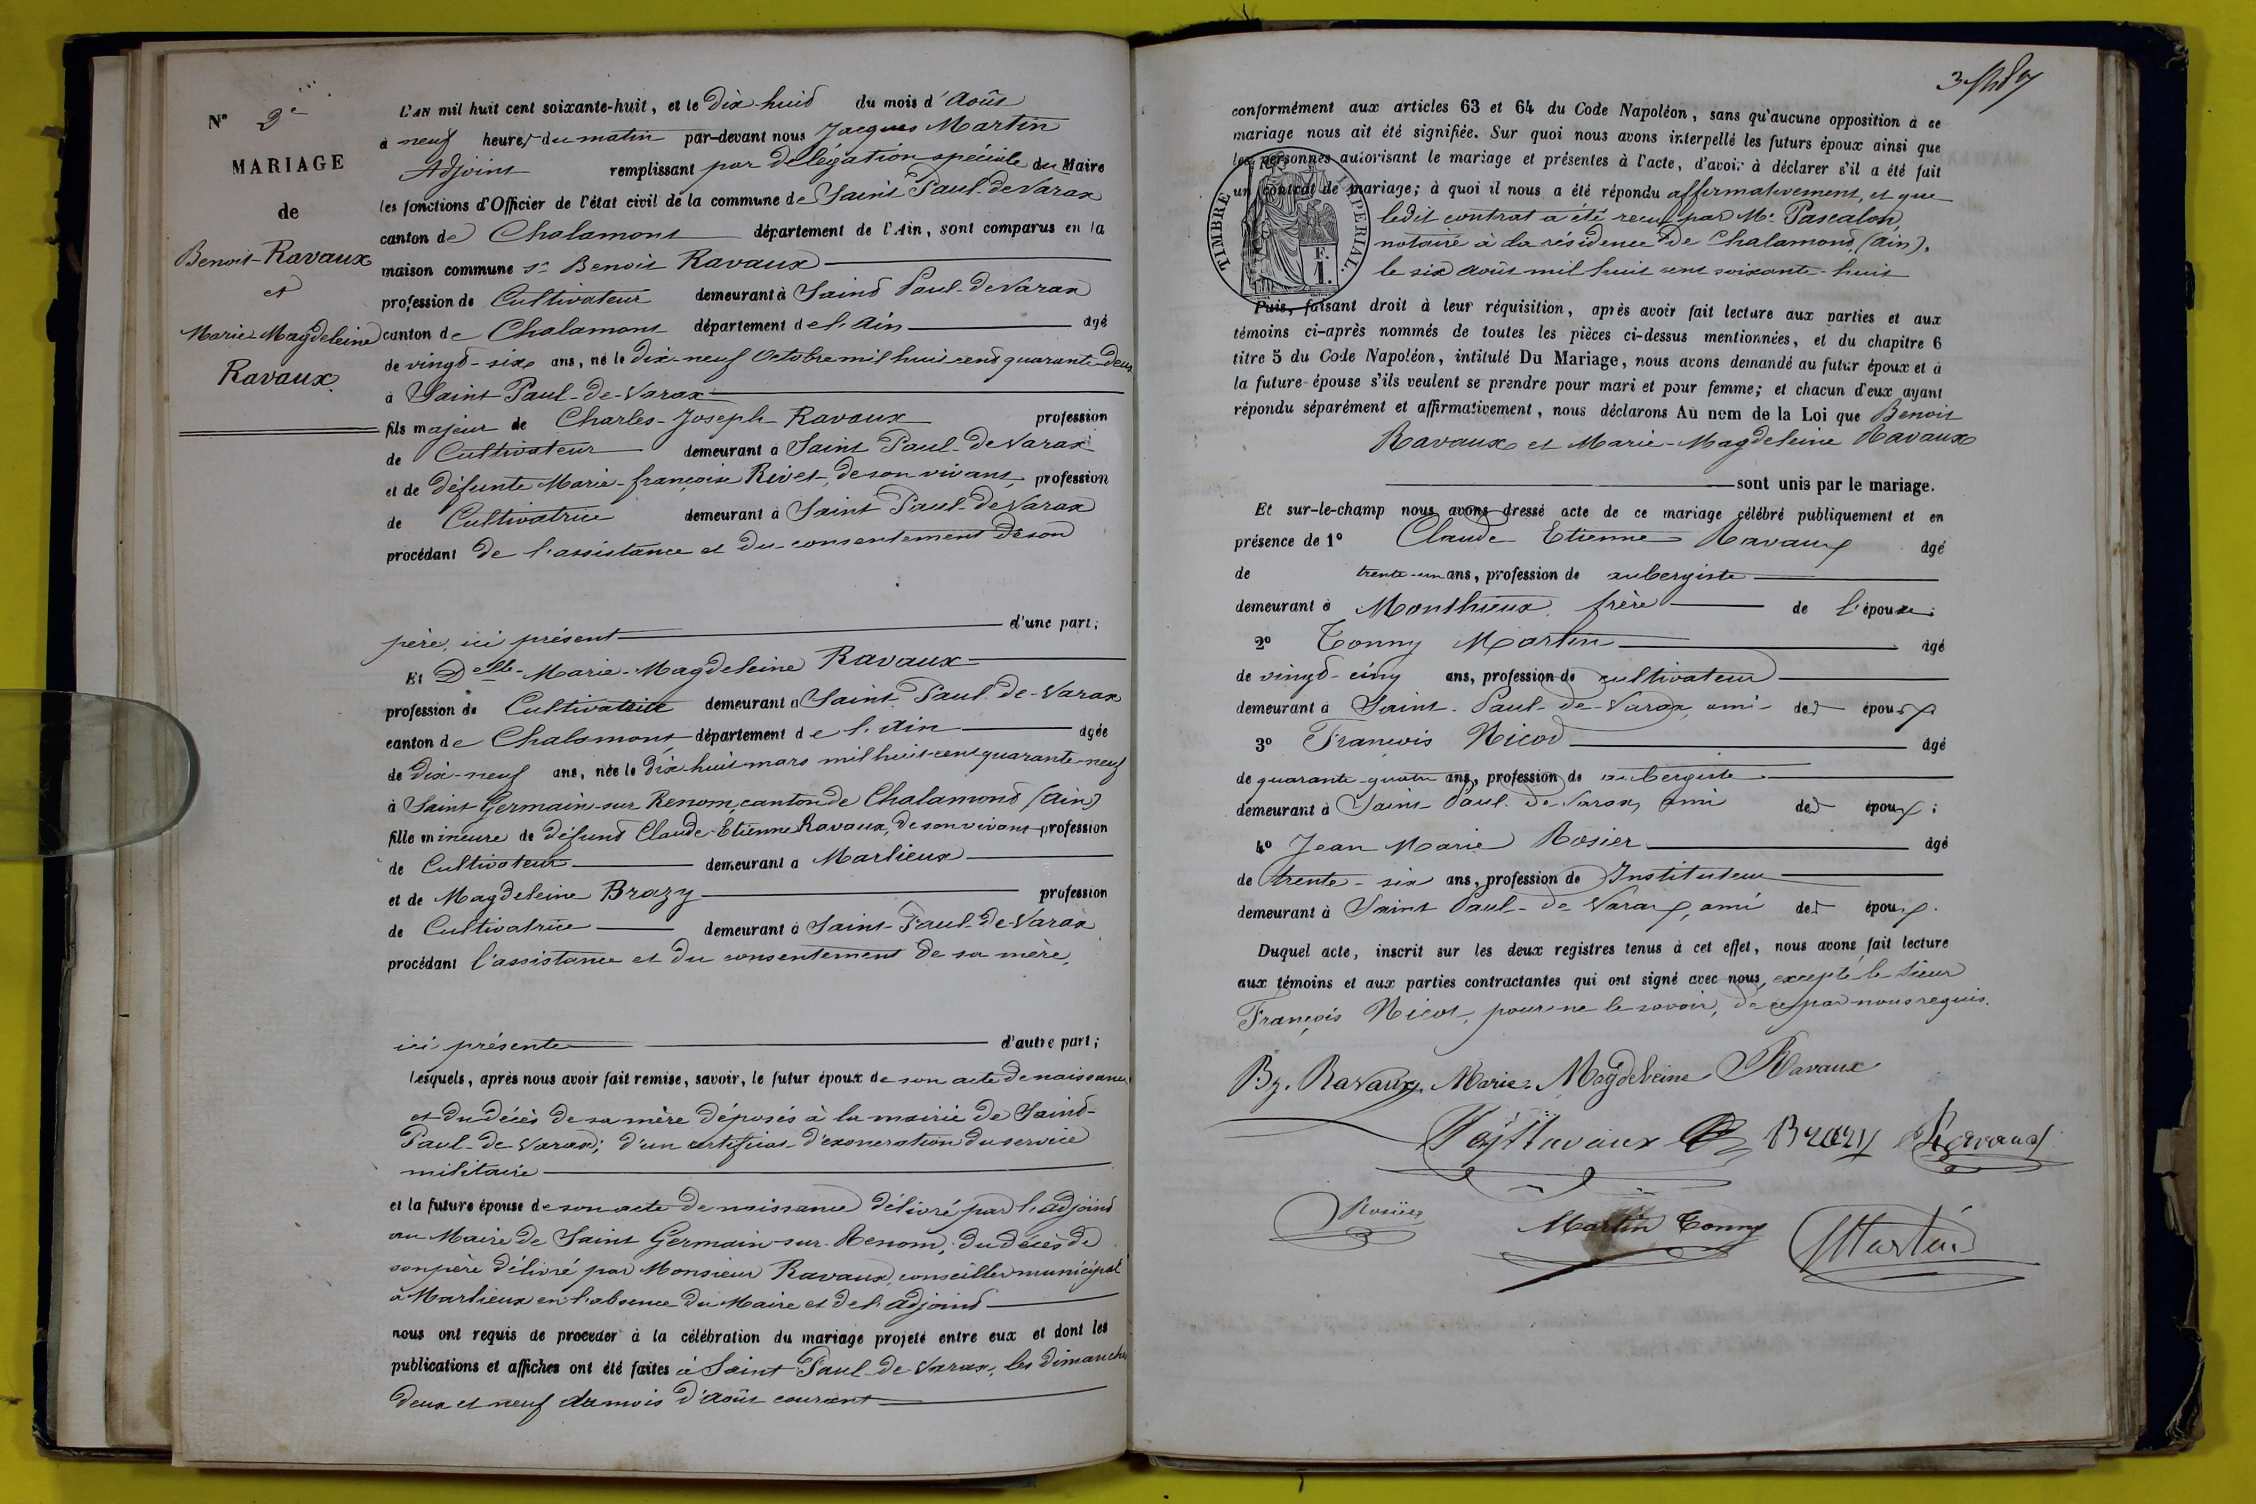 N° 9e
MARIAGE
de
Benoit Ravaux
et
Marie Magdeleine
Ravaux.
L'AN mil huit cent soixante-huit, et le dix-huit du mois d'Août
à neuf heures du matin par-devant nous Jacques Martin
Adjoint remplissant par délégation spéciale du Maire
les fonctions d'Officier de l'état civil de la commune de Saint Paul-de-Varax
canton de Chalamont département de l'Ain, sont comparus en la
maison commune sr Benoit Ravaux
profession de Cultivateur demeurant à Saint Paul-de-Varax
canton de Chalamont département de l'Ain âgé
de vingt-six ans, né le dix-neuf Octobre mil huit cent quarante-deux
à Saint Paul-de-Varax
fils majeur de Charles-Joseph Ravaux profession
de Cultivateur demeurant à Saint Paul-de-Varax
et de défunte Marie-françoise Rivet, de son vivant profession
de Cultivatrice demeurant à Saint Paul-de-Varax
procédant de l'assistance et du consentement de son
père, ici présent d'une part;
Et Delle Marie-Magdeleine Ravaux
profession de Cultivatrice demeurant à Saint Paul-de-Varax
canton de Chalamont département de l'Ain âgée
de dix-neuf ans, née le dix huit mars mil huit cent quarante-neuf
à Saint Germain-sur-Renom, canton de Chalamond (Ain)
fille mineure de défunt Claude-Etienne Ravaux, de son vivant profession
de Cultivateur demeurant à Marlieux
et de Magdeleine Brazy profession
de Cultivatrice demeurant à Saint-Paul-de-Varax
procédant l'assistance et du consentement de sa mère,
ici présente d'autre part;
Lesquels, après nous avoir fait remise, savoir, le futur époux de son acte de naissance
et du décès de sa mère déposés à la mairie de Saint-
Paul-de-Varax; d'un certificat d'exonération du service
militaire
et la future épouse de son acte de naissance délivré par l'adjoint
au Maire de Saint Germain-sur-Renom, du décès de
son père délivré par Monsieur Ravaux, conseiller municipal
à Marlieux en l'absence du Maire et de l'adjoint
nous ont requis de procéder à la célébration du mariage projeté entre eux et dont les
publications et affiches ont été faites à Saint Paul-de-Varax, les dimanches
deux et neuf du mois d'Août courant
conformément aux articles 63 et 64 du Code Napoléon, sans qu'aucune opposition à ce
mariage nous ait été signifiée. Sur quoi nous avons interpellé les futurs époux ainsi que
les personnes autorisant le mariage et présentes à l'acte, d'avoir à déclarer s'il a été fait
un contrat de mariage; à quoi il nous a été répondu affirmativement, et que
ledit contrat a été reçu par Me Pascalon,
notaire à la résidence de Chalamond (Ain),
le six août mil huit cent soixante-huit
TIMBRE IMPERIAL.
F.
1.
Puis, faisant droit à leur réquisition, après avoir fait lecture aux parties et aux
témoins ci-après nommés de toutes les pièces ci-dessus mentionnées, et du chapitre 6
titre 5 du Code Napoléon, intitulé Du Mariage, nous avons demandé au futur époux et à
la future épouse s'ils veulent se prendre pour mari et pour femme; et chacun d'eux ayant
répondu séparément et affirmativement, nous déclarons Au nom de la Loi que Benoit
Ravaux et Marie-Magdeleine Ravaux
sont unis par le mariage.
Et sur-le-champ nous avons dressé acte de ce mariage célébré publiquement et en
présence de 1° Claude Etienne Ravaux âgé
de trente-un ans, profession de aubergiste
demeurant à Monthieux frère de l'épouse;
2° Tonny Martin âgé
de vingt-cinq ans, profession de cultivateur
demeurant à Saint-Paul-de-Varax, ami des époux
3° François Nicod âgé
de quarante-quatre ans, profession de aubergiste
demeurant à Saint Paul-de-Varax, ami des époux;
4° Jean Marie Rosier âgé
de trente-six ans, profession de Instituteur
demeurant à Saint Paul-de-Varax, ami des époux.
Duquel acte, inscrit sur les deux registres tenus à cet effet, nous avons fait lecture
aux témoins et aux parties contractantes qui ont signé avec nous, excepté le sieur
François Nicot, pour ne le savoir, de ce par nous requis.
Bt. Ravaux. Marie-Magdeleine Ravaux
Ravaux Brazy Ravaux
Rosier Martin Tonny Martin